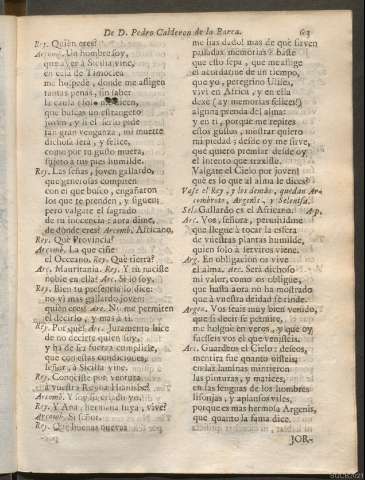 De D. Pedro Calderon de la Barca. 63
Rey. Quièn eres?
Arcomb. Un hombre soy,
que ayer à Sicilia vine,
en casa de Timoclea
me hospedè, donde me afligen
tantas penas, sin saber
la causa
que buscas un estrangero
joven, y si el serlo pide
tan gran venganza, mi muerte
dichosa serà, y felice,
como por tu gusto muera,
sujeto à tus pies humilde.
Rey. Las señas, joven gallardo,
que generosas compiten
con el que busco, engañaron
los que te prenden, y siguen;
pero valgate el sagrado
de tu inocencia: aora dime,
de dònde eres? Arcomb. Africano.
Rey. Què Provincia?
Arcomb. La que ciñe
el Occeano. Rey. Què tierra?
Arc. Mauritania. Rey. Y tù naciste
noble en ella? Arc. Si lo soy.
Rey. Bien tu presencia lo dice:
no vì mas gallardo joven:
quièn eres? Arc. No me permiten
el decirlo, y mas à tì.
Rey. Por què? Arc. Juramento hice
de no decirte quien soy,
y ha de ser fuerza cumplirle,
que con estas condiciones,
señor, à Sicilia vine.
Rey. Conociste por ventura
à vuestra Reyna Hianisbe?
Arcomb. Y soy su criado yo.
Rey. Y Ana, hermana tuya, vive?
Arcomb. Si señor.
Rey. Què buenas nuevas
me has dado! mas de què sirven
passadas memorias? baste
que esto sepa, que me aflige
el acordarme de un tiempo,
que yo, peregrino Ulises,
vivì en Africa, y en ella
dexè (ay memorias felices!)
alguna prenda del alma:
y en tì, porque me repites
estos gustos, mostrar quiero
mi piedad; desde oy me sirve,
que quiero premiar desde oy
el intento que traxiste.
Valgate el Cielo por joven!
què es lo que al alma le dices?
Vase el Rey, y los demàs, quedan Ar-
combroto, Argenis, y Selenisa.
Sel. Gallardo es el Africano. Ap.
Arc. Vos, señora, permitidme
que llegue à tocar la esfera
de vuestras plantas humilde,
quien solo à serviros viene.
Arg. En obligacion os vive
el alma. Arc. Serà dichoso
mi valor, como os obligue;
que hasta aora no ha mostrado
que à vuestra deidad se rinde.
Argen. Vos seais muy bien venido,
que si decir se permite,
me holguè en veros, y que oy
fuesseis vos el que venisteis.
Arc. Guardeos el Cielo: deseos,
mentira fue quanto oisteis,
en las laminas mintieron
las pinturas, y matices,
en las lenguas de los hombres
lisonjas, y aplausos viles,
porque es mas hermosa Argenis,
que quanto la fama dice.
JOR-